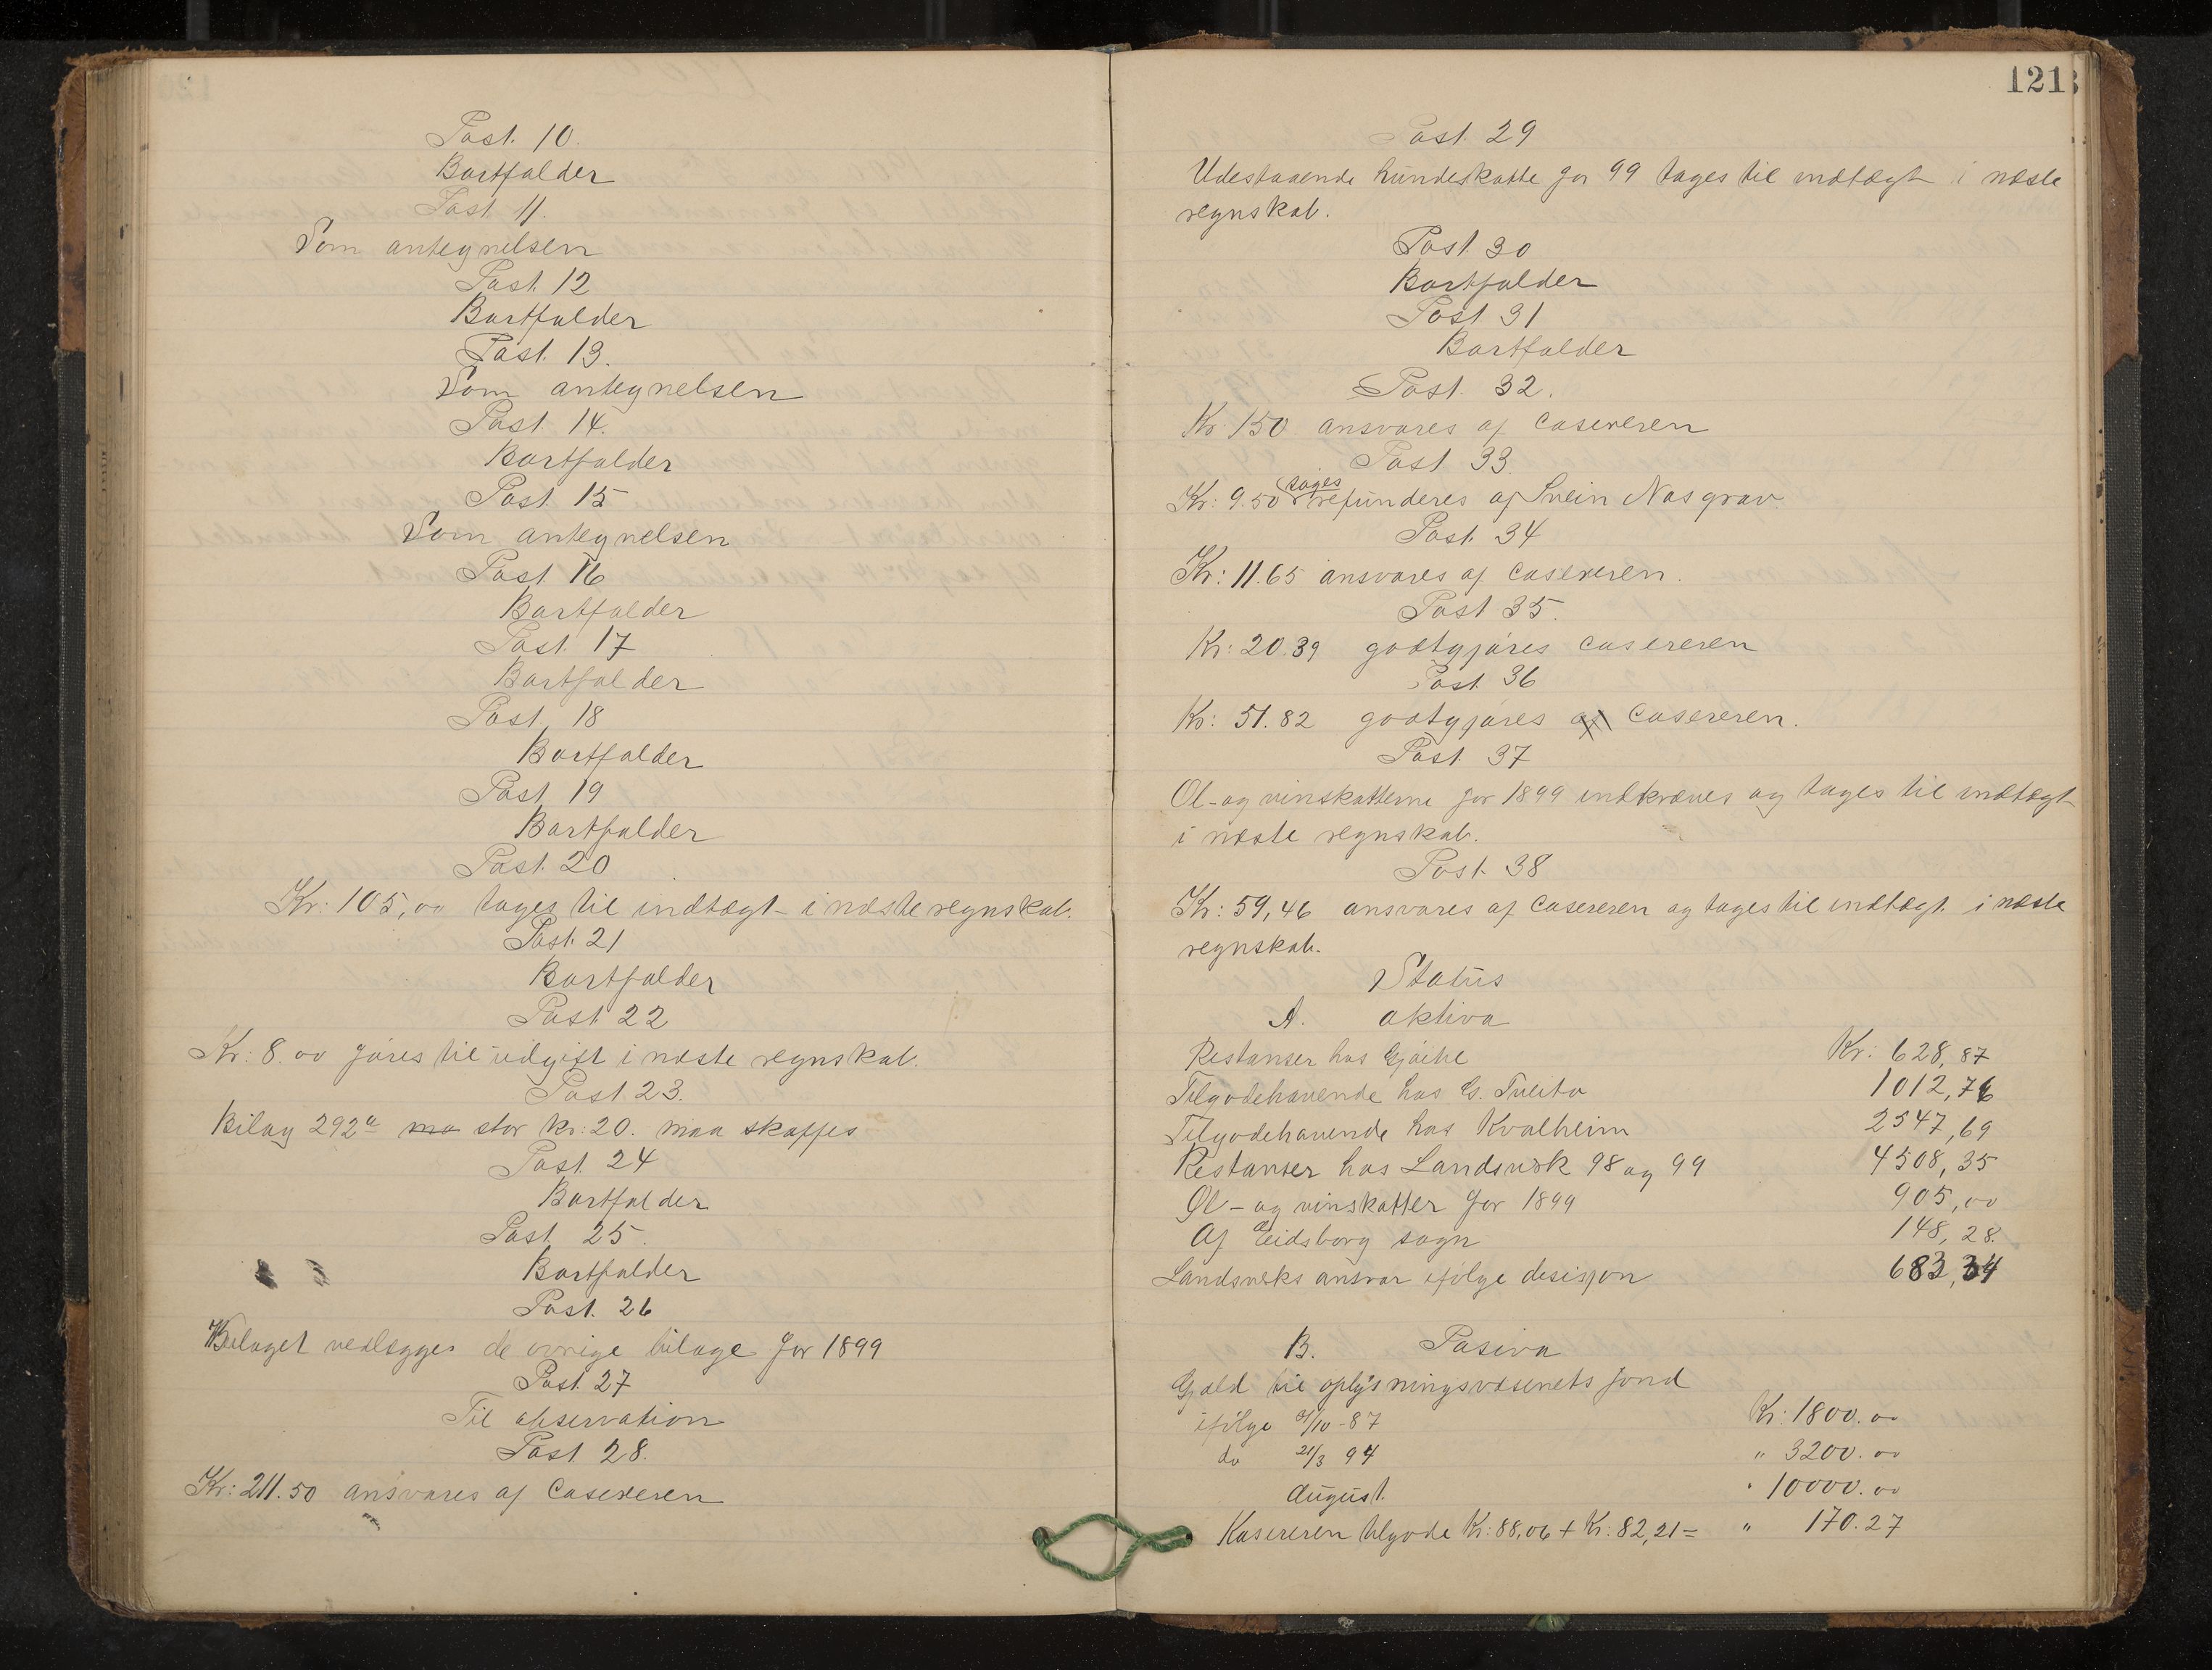 Post. 10.
Bortfalder
Post. 11.
Som antegnelsen
Post. 12
Bortfalder
Post. 13.
Som antegnelsen
Post. 14.
Bortfalder
Post. 15
Som antegnelsen
Post. 16
Bortfalder
Post. 17
Bortfalder
Post. 18
Bortfalder
Post. 19
Bortfalder
Post. 20
Kr: 105,00 tages til indtægt i næste regnskab.
Post. 21
Bortfalder
Post 22
Kr: 8.00 føres til udgift i næste regnskab.
Post 23.
Bilag 292a ma stor kr: 20. maa skaffes
Post. 24
Bortfalder
Post. 25.
Bortfalder
Post. 26
Bilaget vedlægges de øvrige bilage for 1899
Post. 27
Til observation
Post 28.
Kr: 211.50 ansvares af Casereren
121
Post. 29
Udestaaende hundeskatte for 99 tages til indtægt i næste
regnskab.
Post. 30
Bortfalder
Post 31
Bortfalder
Post. 32.
Kr: 150 ansvares af Casereren
Post. 33.
Kr: 9.50 søges refunderes af Svein Nasgrav.
Post. 34
Kr: 11.65 ansvares af Casereren.
Post 35.
Kr: 20.39 godtgjøres casereren
Post. 36
Kr: 51.82 godtgjøres af Casereren.
Post. 37
Øl- og vinskatterne for 1899 indkræves og tages til indtægt
i næste regnskab.
Post. 38
Kr: 59,46 ansvares af Casereren og tages til indtægt i næste
regnskab.
Status
A. aktiva
Restanser hos Kr: 628,87
Tilgodehavende hos G. Tveito 1012,76
Tilgodehavende hos Kvalheim 2547,69
Restanser hos Landsverk 98 og 99 4508,35
Øl- og vinskatter for 1899 905,00
Af Eidsborg sogn 148,28.
Landsverks ansvar ifølge desisjon 683,34
B. Pasiva
Gjæld til oplysningsvæsenets fond
ifølge /10-87 Kr: 1800.00
do 21/3 94 " 3200.00
August. " 10000.00
Kasereren tilgode Kr: 88,06 + Kr: 82,21 = " 170.27